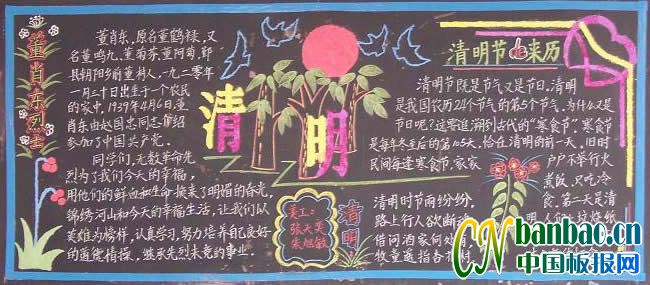 董肖东烈士
董肖东,原名董鹤禄,又
名董鸣九、董菊荪、董阿菊,鄞
县胡阳乡前董村人,一九一零年
一月三十日出生于一个农民
的家中,1939年4月6日董
肖东由赵国忠同志介绍
参加了中国共产党。
同学们,无数革命先
烈为了我们今天的幸福,
用他们的鲜血和生命换来了明媚的春光,
锦绣河山和今天的幸福生活,让我们以
英雄为榜样,认真学习,努力培养自己良好
的道德情操,继承先烈未竟的事业。
清明
美工:
张天英
朱旭敏
清明
清明时节雨纷纷,
路上行人欲断
借问酒家何处有
牧童遥指杏
清明节的来历
清明节既是节气又是节日,清明
是我国农历24个节气的第5个节气,为什么又是
节日呢?这要追溯到古代的“寒食节”,寒食节
是每年冬至后的第105天,恰在清明的前一天,旧时
民间每逢寒食节,家家
户户不举行火
煮饭,只吃冷
食,第一天是清
CNbanbao.cn
中国板报网